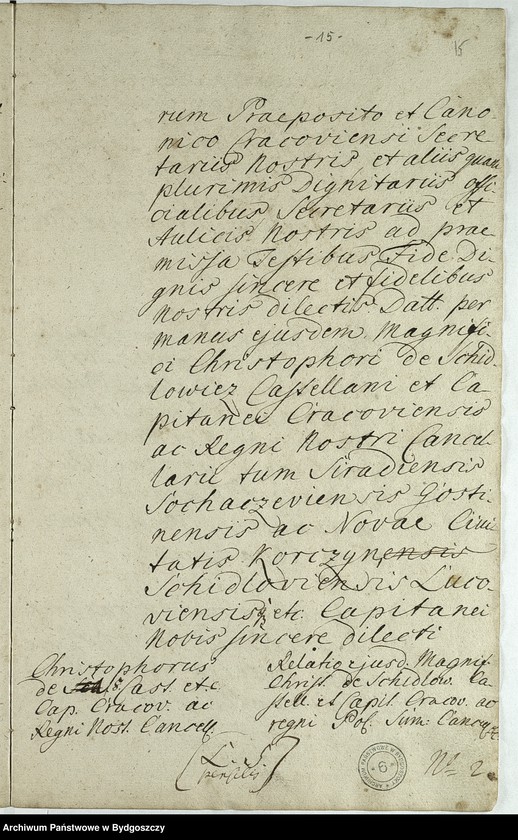 -15-
15
rum Praeposito et Cano-
nico Cracoviensi Secre
tariis Nostris et aliis quam
plurimis Dignitariis offi-
cialibus Secretariis et
Aulicis Nostris ad prae
missa Testibus Fide Di-
gnis sincere et fidelibus
Nostris dilectis. Datt. per
manus ejusdem Magnifi-
ci Christophori de Schid-
lowiez Castellani et Ca-
pitanei Cracoviensis
ac Regni Nostri Cancel
larii tum Siradiensis
Sochaczeviensis Gosti-
nensis ac Novae Civi
tatis Korczynensis
Schidloviensis Luco-
viensis etc. Capitanei
Nobis sincere dilecti
Christophorus
de Cast. etc.
Cap. Cracov. ac
Regni Nost. Cancell.
Relatio ejusd. Magnif.
Christ. de Schidlow. Ca-
stell. et Capit. Cracov. ac
regni Pol. Sum:
(L. S.)
ARCHIWUM PAŃSTWOWE W BYDGOSZCZY
6
No 2
Archiwum Państwowe w Bydgoszczy